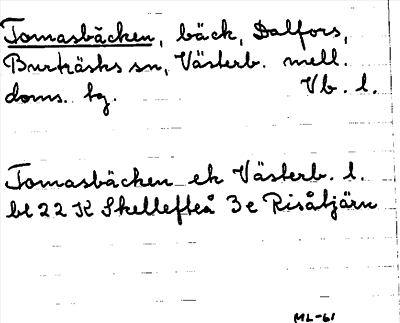 Tomasbäcken, bäck, Dalfors,
Burträsks sn, Västerb. mell.
doms. tg. Vb. l.
Tomasbäcken ek Västerb. l.
bl 22 K Skellefteå 3e Risåtjärn
ML-61